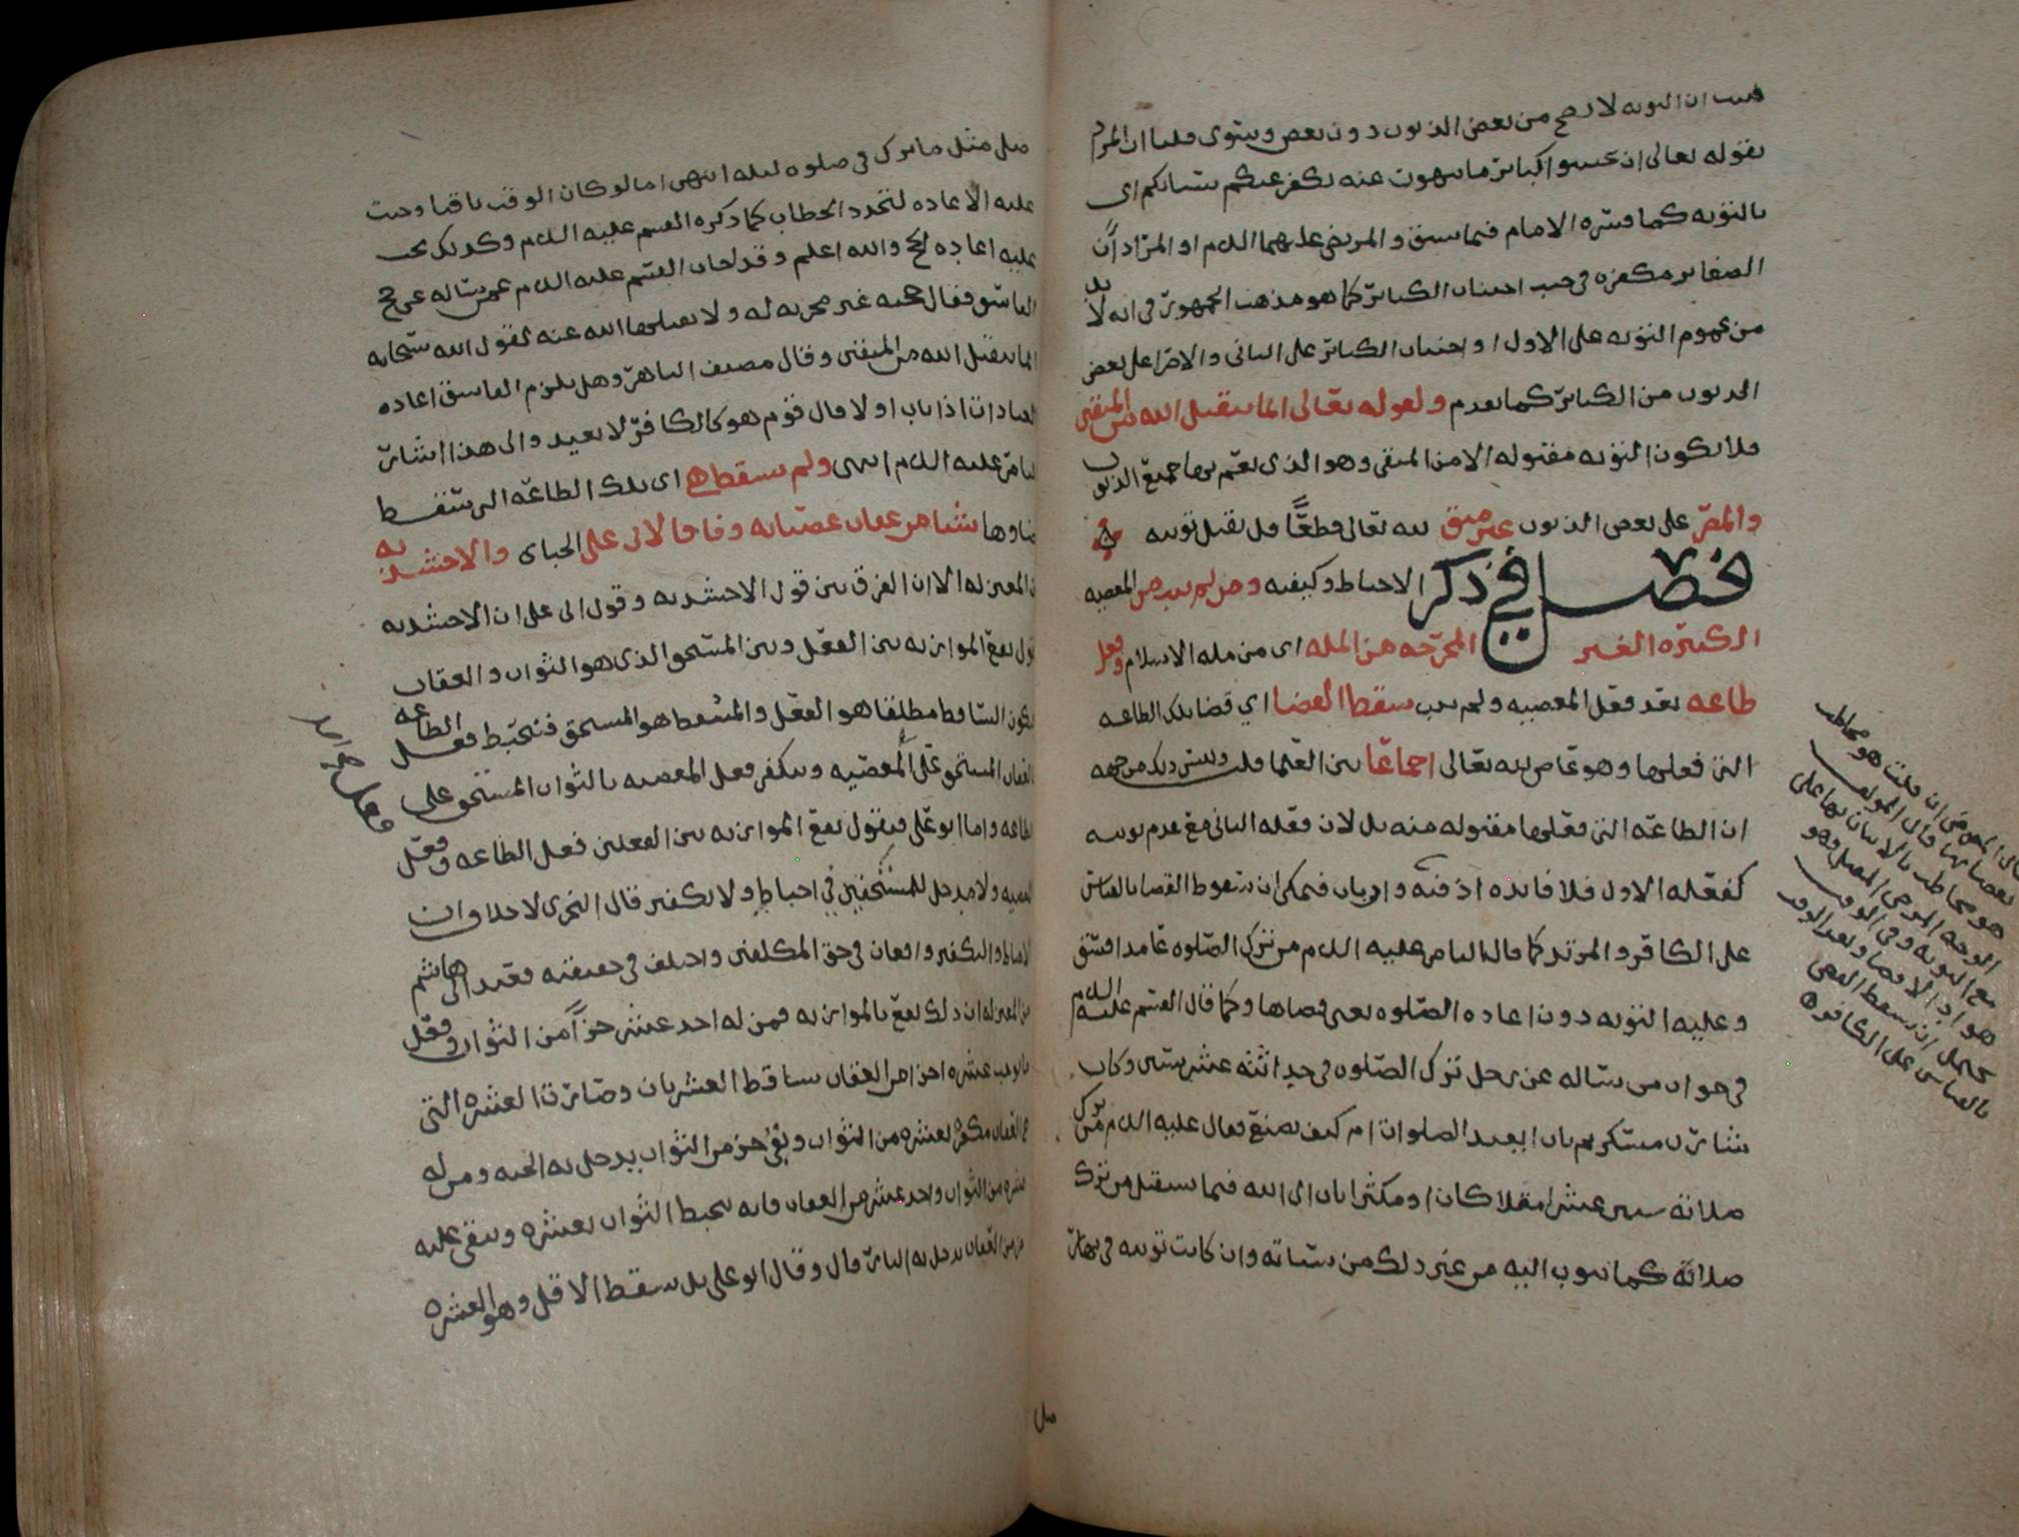 فثبت ان التوبه لا تصح من بعض الذنوب دون بعض ويستوى قلنا ان المراد
بقوله تعالى ان تجتنبوا كبائر ما تنهون عنه نكفر عنكم سيئاتكم اى
بالتوبه كما فسره الامام فيما سبق و المرتضى عليهما السلم او المراد ان
الصغاير مكفره فى جنب اجتناب الكبائر كما هو مذهب الجمهور فى انه لا بد
من عموم التوبه على الاول او اجتناب الكبائر على الثانى والاصرار على بعض
الذنوب من الكبائر كما تقدم ولقوله تعالى انما يتقبل الله من المتقين
فلا تكون التوبه مقبوله الا من المتقى وهو الذى تعم توبته جميع الذنوب
والمصر على بعض الذنوب غير متق لله تعالى قطعًا فلم تقبل توبته
فصل في ذكر الاحباط وكيفيته ومن لم يتب من المعصيه
الكبيره الغير المخرجه من المله اى من مله الاسلام وفعل
طاعه بعد فعل المعصيه ولم يتب سقط القضا اي قضا تلك الطاعه
التي فعلها وهو عاص لله تعالى اجماعًا بين العلما قلت وليس ذلك من جهه
ان الطاعه التي فعلها مقبوله منه بل لان فعله الثانى مع عدم توبته
كفعله الاول فلا فائده اذ فيه وازيان فيمكن ان سقوط القضا بالقياس
على الكافر والمرتد كما قال الناصر عليه السلم من ترك الصلوه عامدا فسق
وعليه التوبه دون اعاده الصلوه يعنى قضاها وكما قال القسم عليه السلم
فى جواب من ساله عن رجل ترك الصلوه فى حداثته عشر سنين وكان
شارب مسكر ثم تاب ايعيد الصلوات ام كيف يصنع فقال عليه السلم من ترك
صلاته سنين عشرا مقلا كان او مكثرا تاب الى الله فيما يستقبل من ترك
صلاته كما يتوب اليه من غير ذلك من سيئاته وان كانت توبته فى نهار
صلى مثل ما ترك فى صلوه ليله انتهى اما لو كان الوقت باقيا وجبت
عليه الاعاده لتجدد الخطاب كما ذكره القسم عليه السلم وكذلك تجب
عليه اعاده الحج والله اعلم وقد اجاب القسم عليه السلم عمن ساله عن حج
الفاسق فقال حجه غير مجزيه له ولا يقبلها الله عنه لقول الله سبحانه
انما يتقبل الله من المتقين وقال مصنف الباهر وهل يلزم الفاسق اعاده
العبادات اذا تاب او لا قال قوم هو كالكافر لا يعيد والى هذا اشار
الناصر عليه السلم انتهى ولم يسقط بها اى بتلك الطاعه التى سقط
قضاوها شيئا من عقاب عصيانه وفاقا لابى على الجبائى والاخشيديه
من المعتزله الا ان الفرق بين قول الاخشيديه وقول ابى على ان الاخشيديه
تقول تقع الموازنه بين الفعل وبين المستحق الذى هو الثواب والعقاب
ويكون الساقط مطلقا هو الفعل والمسقط هو المستحق فتحبط فعل الطاعه
بالعقاب المستحق على المعصيه ويكفر فعل المعصيه بالثواب المستحق على
الطاعه واما ابو على فيقول تقع الموازنه بين الفعلين فعل الطاعه وفعل
المعصيه ولا مدخل للمستحقين في احباط ولا تكفير قال النجرى لا خلاف ان
الاحباط والتكفير واقعان فى حق المكلفين واختلف فى حقيقته فعند ابى هاشم
من المعتزله ان ذلك يقع بالموازنه فمن له احد عشر جزأ من الثواب وفعل
ما يوجب عشره اجزا من العقاب تساقط العشرتان وصارت العشره التي
من العقاب مكفره لعشره من الثواب وبقى جز من الثواب يدخل به الجنه ومن له
عشره من الثواب واحد عشر من العقاب فانه يحبط الثواب بعشره ويبقى عليه
جز من العقاب يدخل به النار قال وقال ابو على بل يسقط الاقل وهو العشره